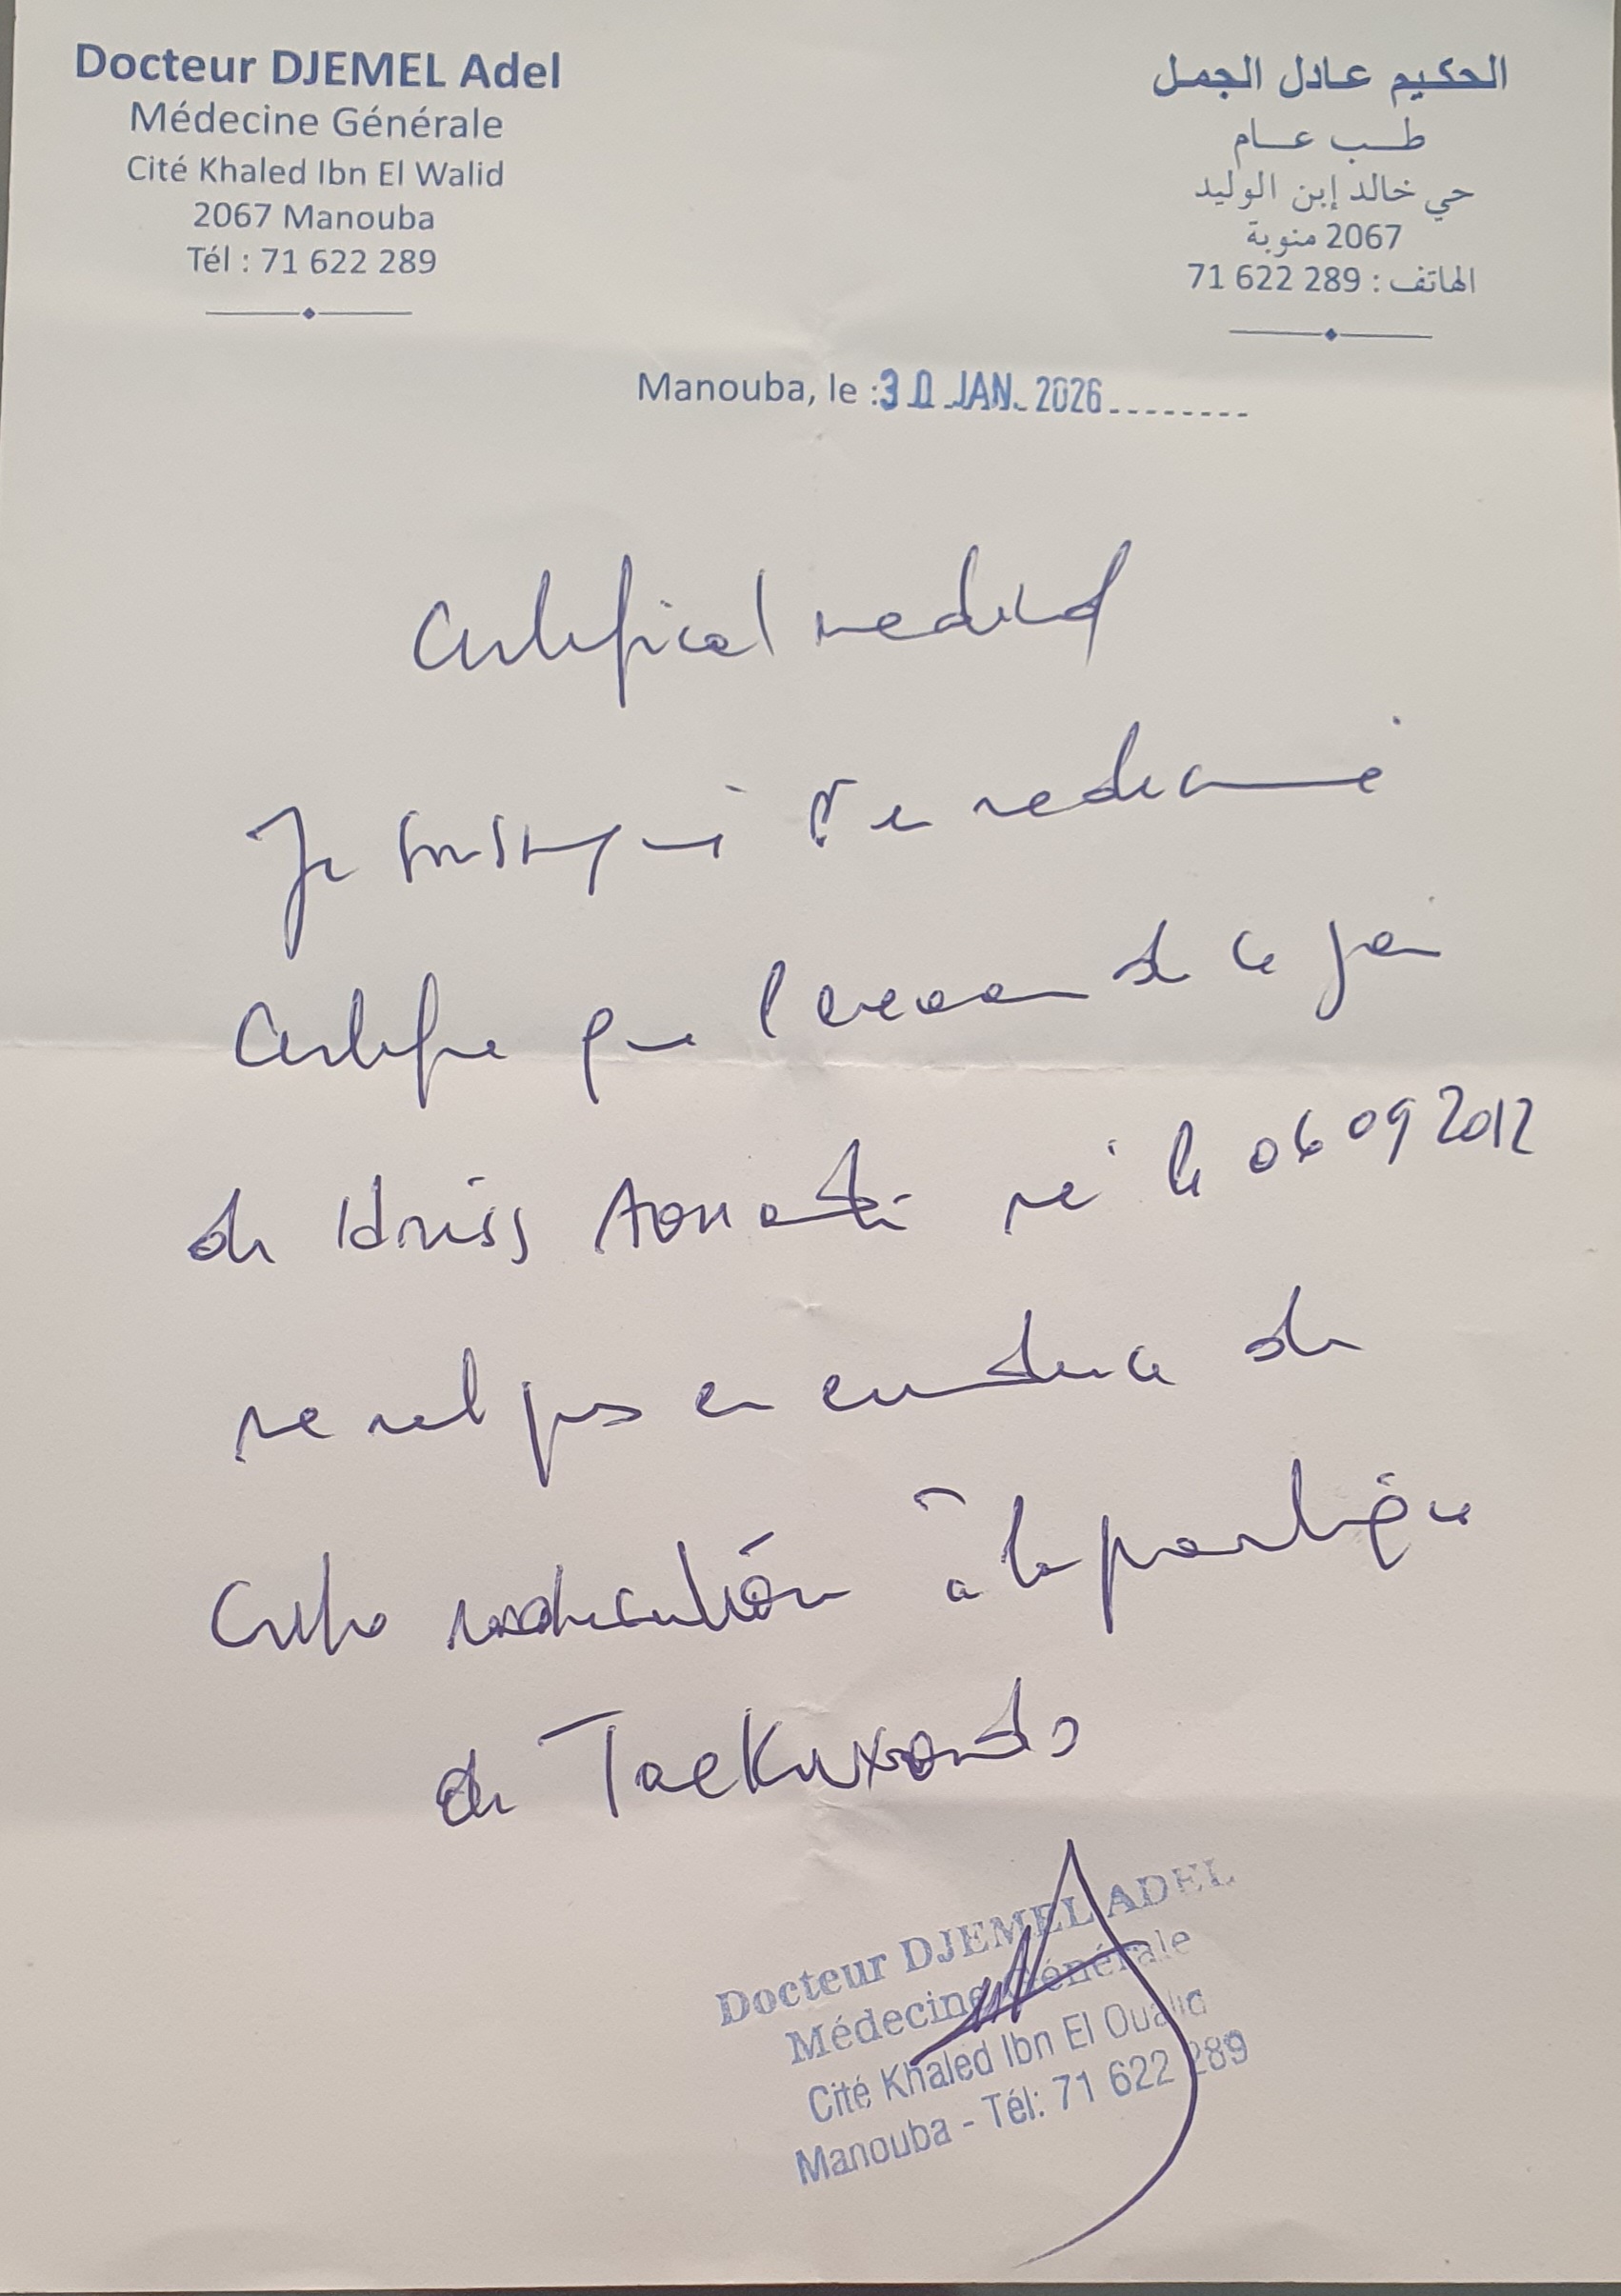 Docteur DJEMEL Adel
Médecine Générale
Cité Khaled Ibn El Walid
2067 Manouba
Tél : 71 622 289
الحكيم عادل الجمل
طب عام
حي خالد إبن الوليد
2067 منوبة
الهاتف : 289 622 71
Manouba, le : 30 JAN. 2026
Certificat medical
Je soussigné Dr en medecine
Certifie que l'examen de ce jour
de Idriss né le 06 09 2012
ne met pas en evidence de
Contre indication à la pratique
de Taekwondo
Docteur DJEMEL ADEL
Médecine Générale
Cité Khaled Ibn El Oualid
Manouba - Tél: 71 622 289